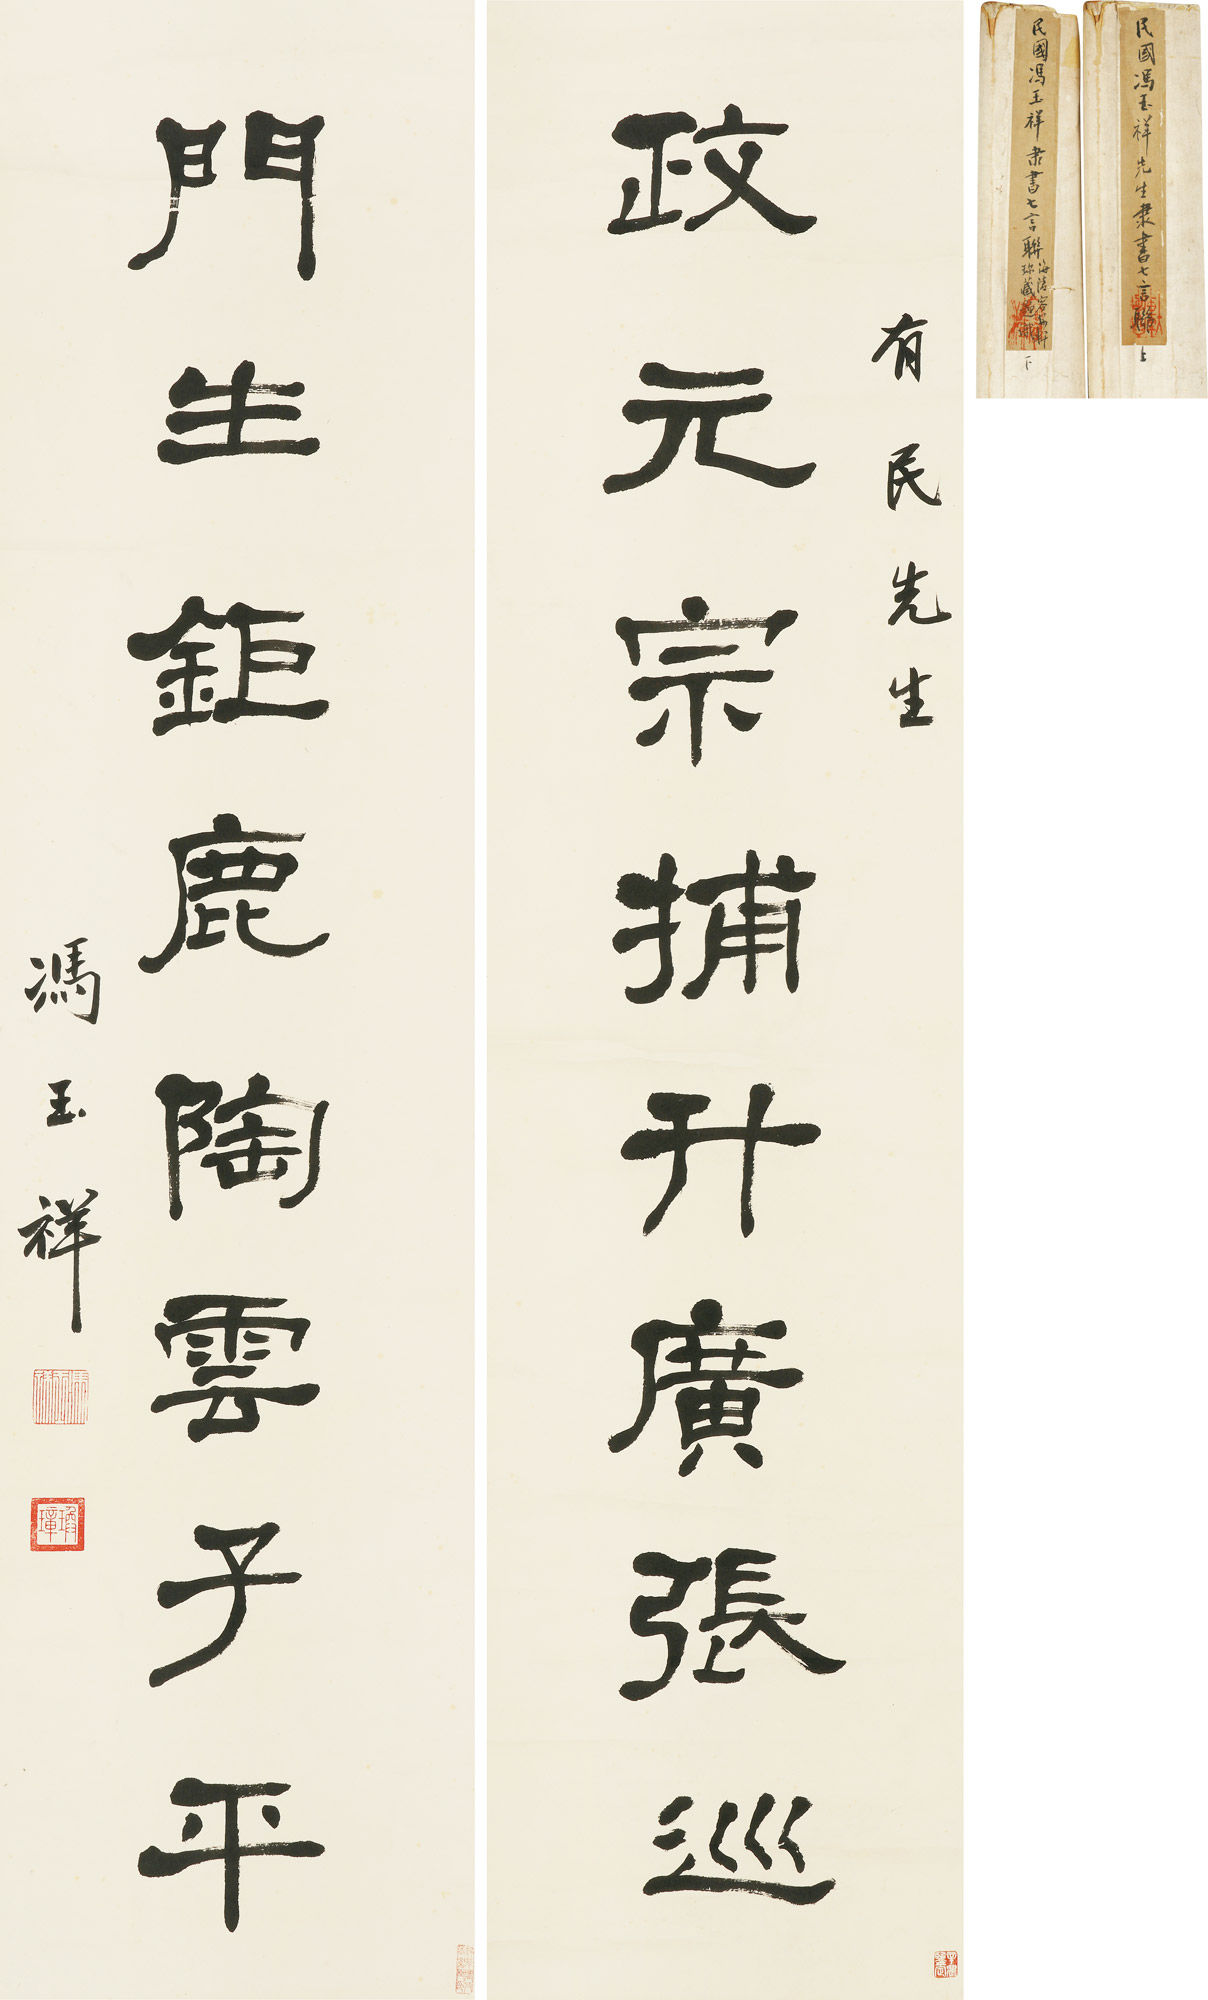 有民先生
政元宗捕升廣張巡
門生鉅鹿陶雲子平
馮玉祥
民國馮玉祥先生隸書七言聯
上
民國馮玉祥隸書七言聯
下